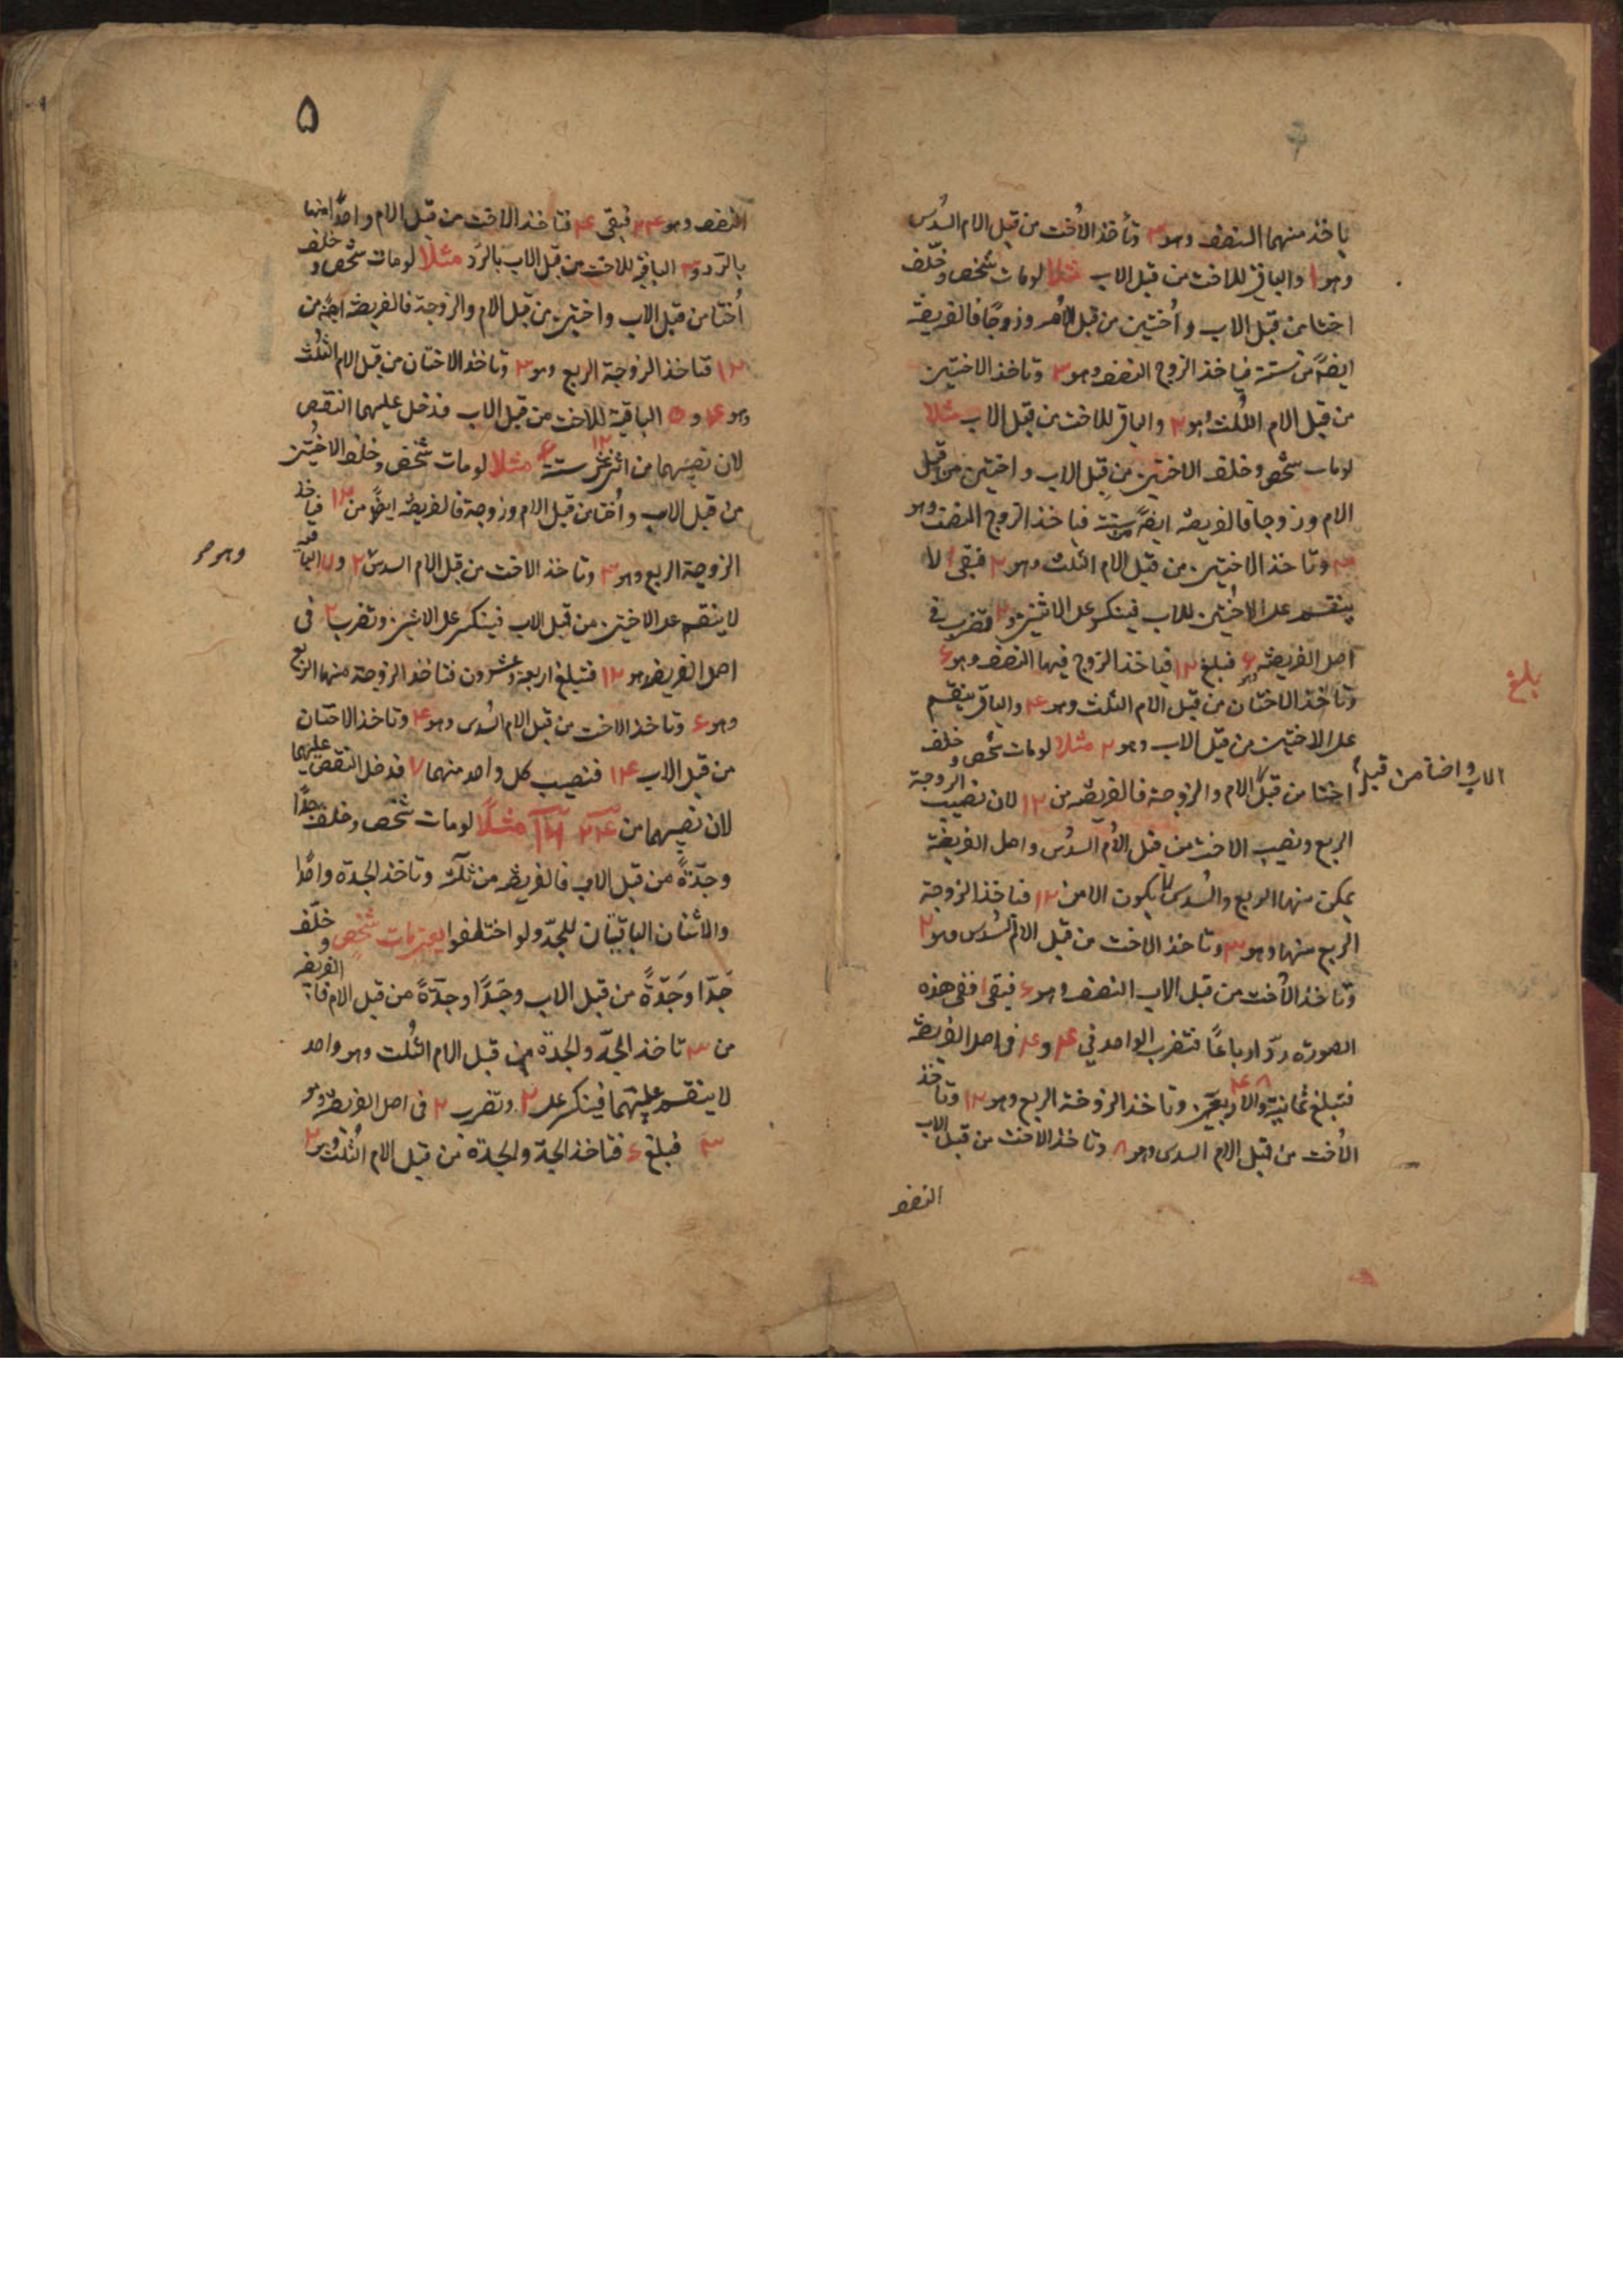 ياخذ منهما النصف وهو ۳ وتأخذ الأخت من قبل الام السدس
وهو ۱ والباقى للاخت من قبل الاب مثلا لومات شخص وخلّف
اختا من قبل الاب وأختين من قبل الام وزوجًا فالفريضة
ايضًا من ستة فياخذ الزوج النصف وهو ۳ وتاخذ الاختين
من قبل الام الثلث وهو ۲ والباقى للاخت من قبل الاب مثلا
لومات شخص وخلف الاختين من قبل الاب واختين من قبل
الام وزوجا فالفريضة ايضًا من ستة فياخذ الزوج النصف وهو
۳ وتاخذ الاختين من قبل الام الثلث وهو ۲ فبقى ۱ لا
ينقسم على الاختين للاب فينكسر على الاثنين و ۲ تضرب فى
اصل الفريضة وهو ۶ فبلغ ۱۲ فياخذ الزوج فيها النصف وهو ۶
بلغ
وتاخذ الاختان من قبل الام الثلث وهو ۴ والباقى ينقسم
على الاختين من قبل الاب وهو ۲ مثلا لومات شخص وخلف
اختا من قبل الام والزوجة فالفريضة من ۱۲ لان نصيب الزوجة
الاب واختا من قبل
الربع ونصيب الاخت من قبل الأم السدس واصل الفريضة
يمكن منها الربع والسدس لا يكون الا من ۱۲ فتاخذ الزوجة
الربع منها وهو ۳ وتاخذ الاخت من قبل الام السدس وهو ۲
وتاخذ الأخت من قبل الاب النصف وهو ۶ فبقى ۱ ففى هذه
الصورة ردّ ارباعًا فتضرب الواحد في ۴ و ۴ فى اصل الفريضة
فتبلغ ثمانية والاربعين ۴۸ وتاخذ الزوجة الربع وهو ۱۲ وتاخذ
الأخت من قبل الام السدس وهو ۸ وتاخذ الاخت من قبل الاب
النصف
۵
النصف وهو ۲۴ فبقى ۴ فتاخذ الاخت من قبل الام واحدًا منها
بالرّد و ۳ الباقى للاخت من قبل الاب بالرّد مثلا لومات شخص وخلف
أختا من قبل الاب واختين من قبل الام والزوجة فالفريضة ايضًا من
۱۲ فتاخذ الزوجة الربع وهو ۳ وتاخذ الاختان من قبل الام الثلث
وهو ۴ و ۵ الباقية للاخت من قبل الاب فدخل عليهما النقص
لان نصيبهما من اثنى عشر ۱۲ ستة ۶ مثلا لومات شخص وخلف الاختين
من قبل الاب وأختا من قبل الام وزوجة فالفريضة ايضًا من ۱۲ فياخذ
الزوجة الربع وهو ۳ وتاخذ الاخت من قبل الام السدس ۲ و ۷ الباقية
لا ينقسم على الاختين من قبل الاب فينكسر على الاثنين وتضرب ۲ فى
اصل الفريضة وهو ۱۲ فتبلغ اربعة وعشرون فتاخذ الزوجة منها الربع
وهو ۶ وتاخذ الاخت من قبل الام السدس وهو ۴ وتاخذ الاختان
من قبل الاب ۱۴ فنصيب كل واحد منهما ۷ فدخل النقص عليهما
لان نصيبهما من ۲۴ ۱۶ مثلًا لومات شخص وخلف جدًا
وجدّةً من قبل الاب فالفريضة من ثلثة وتاخذ الجدة واحدًا
والاثنان الباقيتان للجدّ ولو اختلفوا يعنى مات شخص وخلّف
جَدّا وَجَدّةً من قبل الاب وجَدًّا وجدّةً من قبل الام فالفريضة
من ۳ تاخذ الجدّ والجدة من قبل الام الثُلث وهو واحد
لا ينقسم عليهما فينكسر على ۲ وتضرب ۲ فى اصل الفريضة وهو
۳ فبلغ ۶ فتاخذ الجدّ والجدة من قبل الام الثُلث وهو ۲